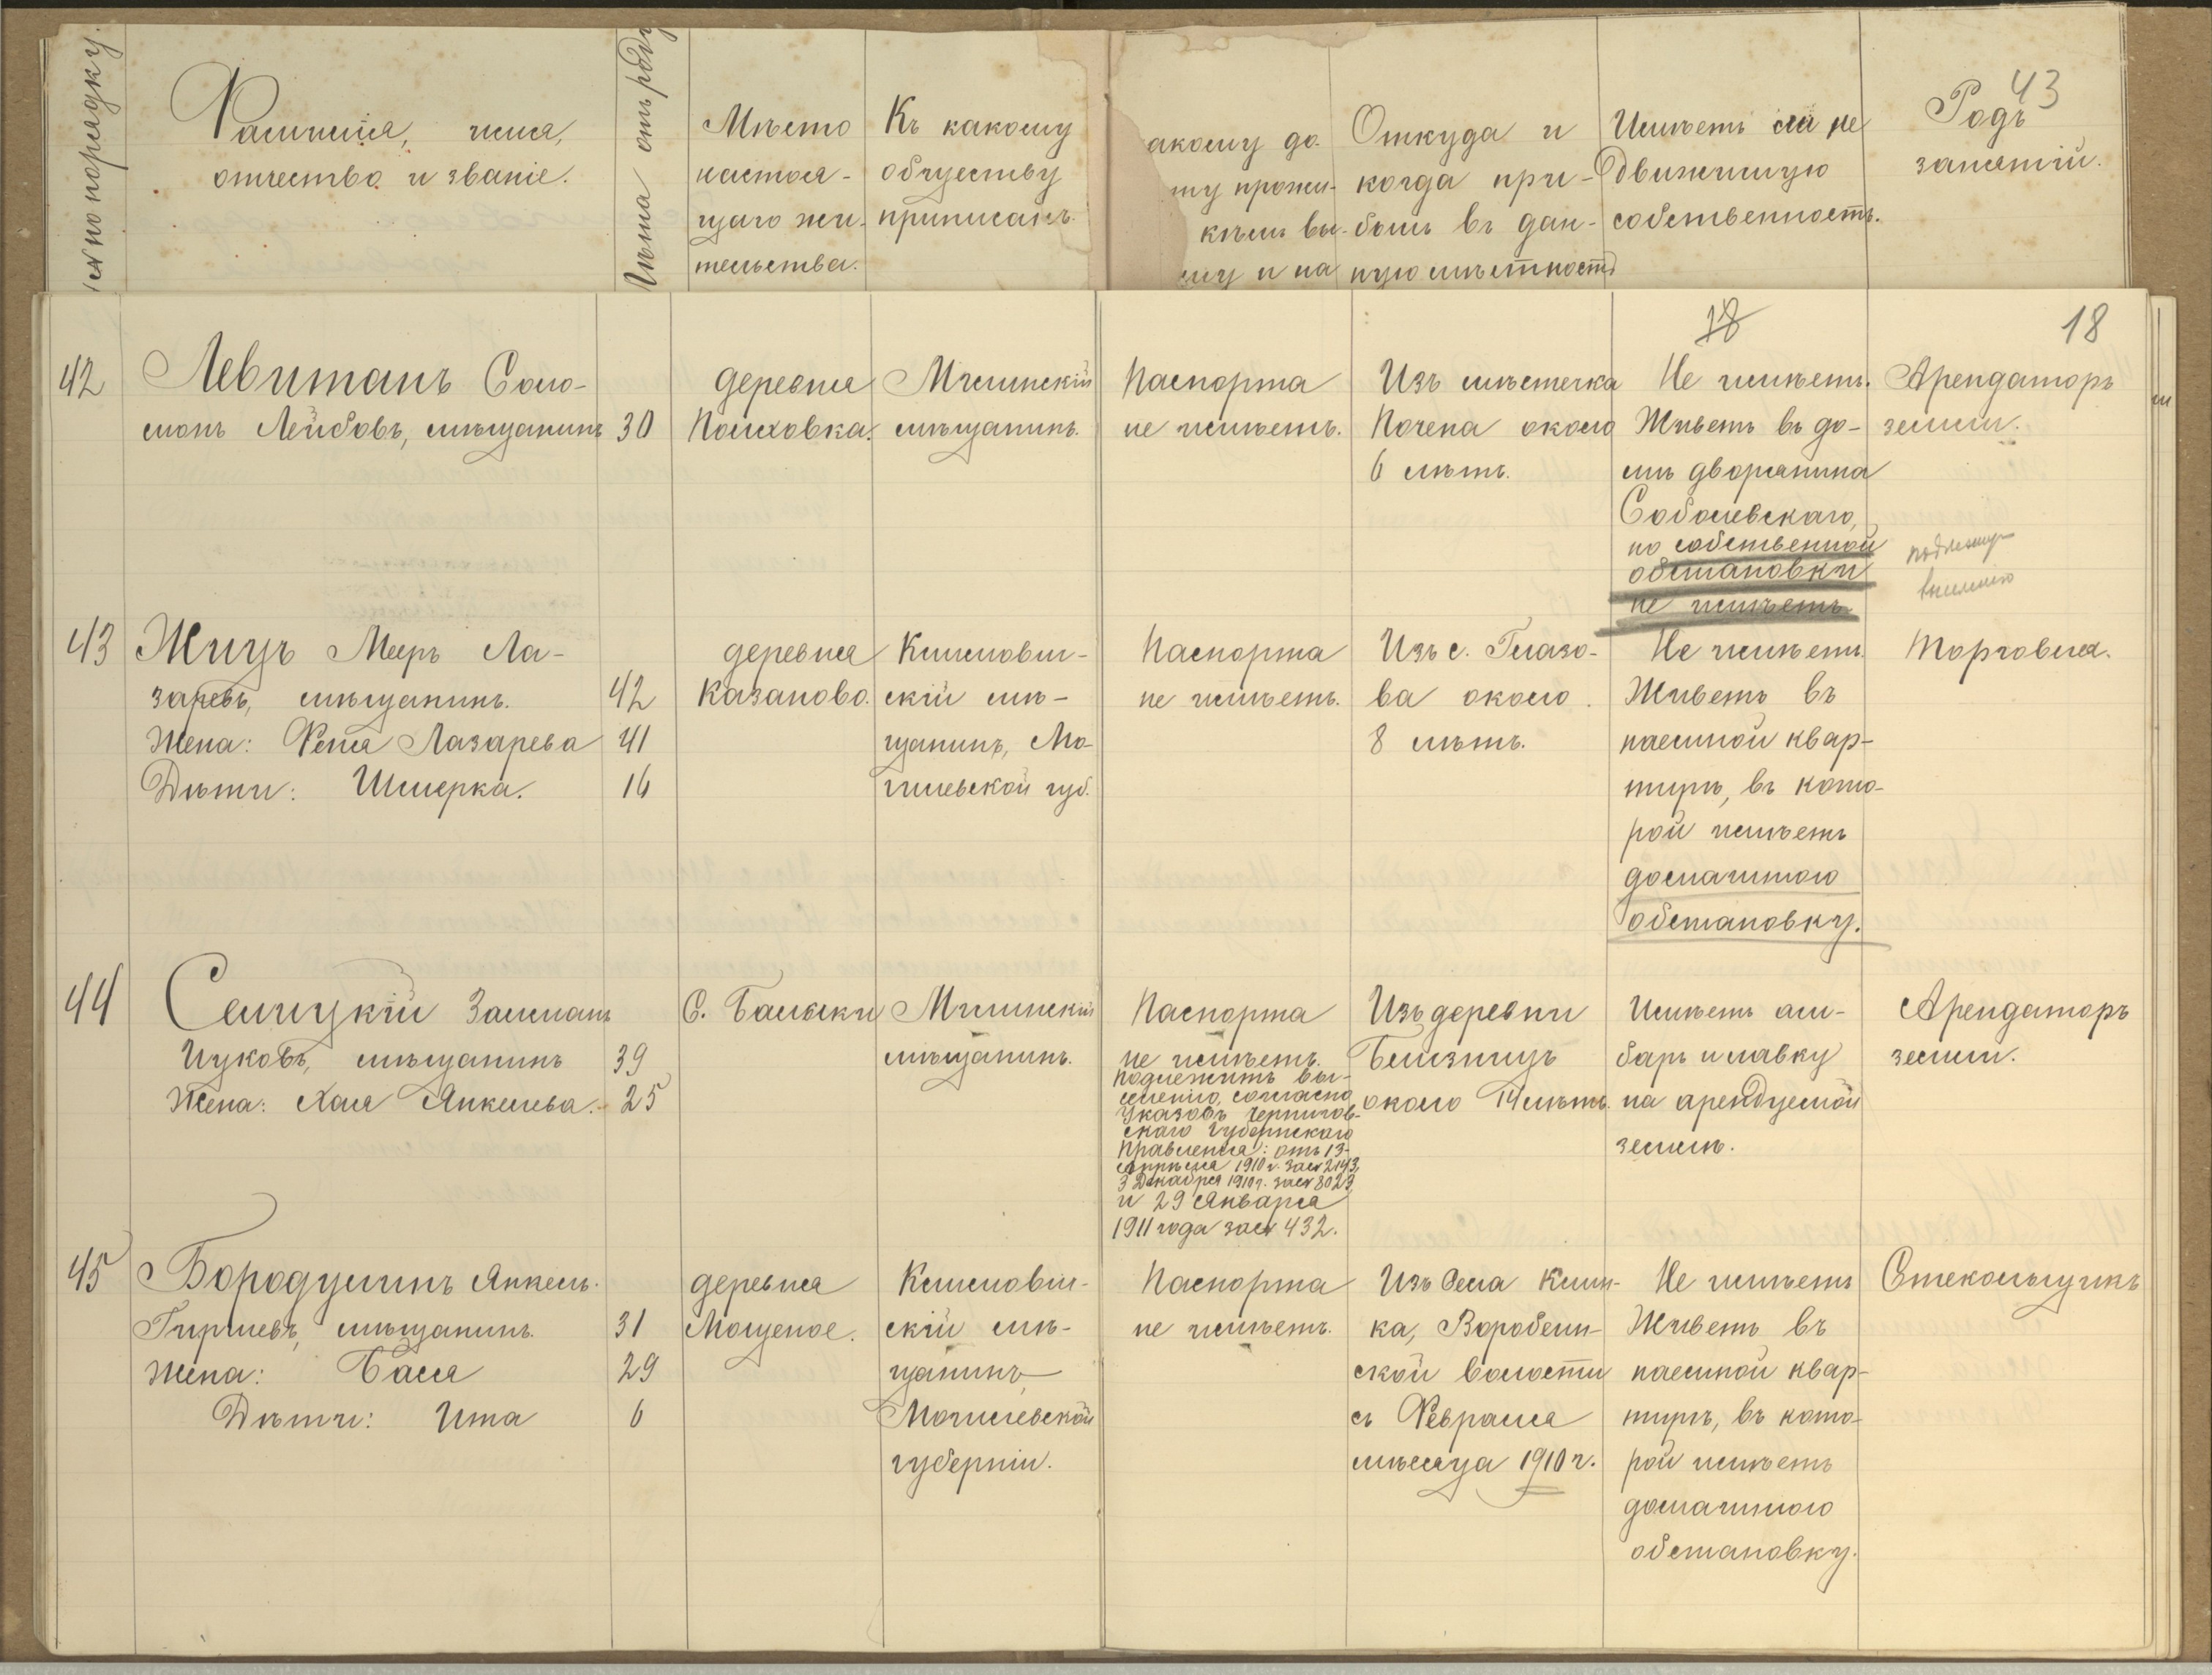 № по порядку.
Фамилія, имя,
отчество и званіе.
Лѣта отъ роду
Мѣсто
настоя-
щаго жи-
тельства.
Къ какому
обществу
приписанъ.
акому до-
ту прожи-
кѣмъ вы-
ему и на
Откуда и
когда при-
былъ въ дан-
ную мѣстность
Имѣетъ ли не
движимую
собственность.
43
Родъ
занятій.
18
18
42
Левитанъ Соло-
монъ Лейбовъ, мѣщанинъ
30
деревня
Полховка.
Мглинскій
мѣщанинъ.
Паспорта
не имѣетъ.
Изъ мѣстечка
Почепа около
6 лѣтъ.
Не имѣетъ.
Живетъ въ до-
мѣ дворянина
Соболевскаго,
но собственной
обстановки
не имѣетъ
Арендаторъ
земли.
43
Жицъ Мееръ Ла-
заревъ, мѣщанинъ.
42
Жена: Феня Лазарева
41
Дѣти: Шмерка.
16
деревня
Казаново.
Климови-
скій мѣ-
щанинъ, Мо-
гилевской губ.
Паспорта
не имѣетъ.
Изъ с. Глазо-
ва около
8 лѣтъ.
Не имѣетъ.
Живетъ въ
наемной квар-
тирѣ, въ кото-
рой имѣетъ
домашнюю
обстановку.
Торговля.
44
Семицкій Залманъ
Ицковъ, мѣщанинъ
39
Жена: Хая Янкелева.
25
С. Балыки
Мглинскій
мѣщанинъ.
Паспорта
не имѣетъ.
Подлежитъ вы-
селенію, согласно
Указовъ Чернигов-
скаго Губернскаго
Правленія: отъ 13-
Апрѣля 1910 г. за № 2143,
3 Декабря 1910 г. за № 8023
и 29 Января
1911 года за № 432.
Изъ деревни
Близницъ
около 14 лѣтъ.
Имѣетъ ам-
баръ и лавку
на арендуемой
землѣ.
Арендаторъ
земли.
45
Бородулинъ Янкель
Гиршевъ, мѣщанинъ.
31
Жена: Бася
29
Дѣти: Ита
6
деревня
Мощеное.
Климови-
скій мѣ-
щанинъ,
Могилевской
губерніи.
Паспорта
не имѣетъ.
Изъ села Клин-
ка, Воробеин-
ской волости
съ Февраля
мѣсяца 1910 г.
Не имѣетъ
Живетъ въ
наемной квар-
тирѣ, въ кото-
рой имѣетъ
домашнюю
обстановку.
Стекольщикъ